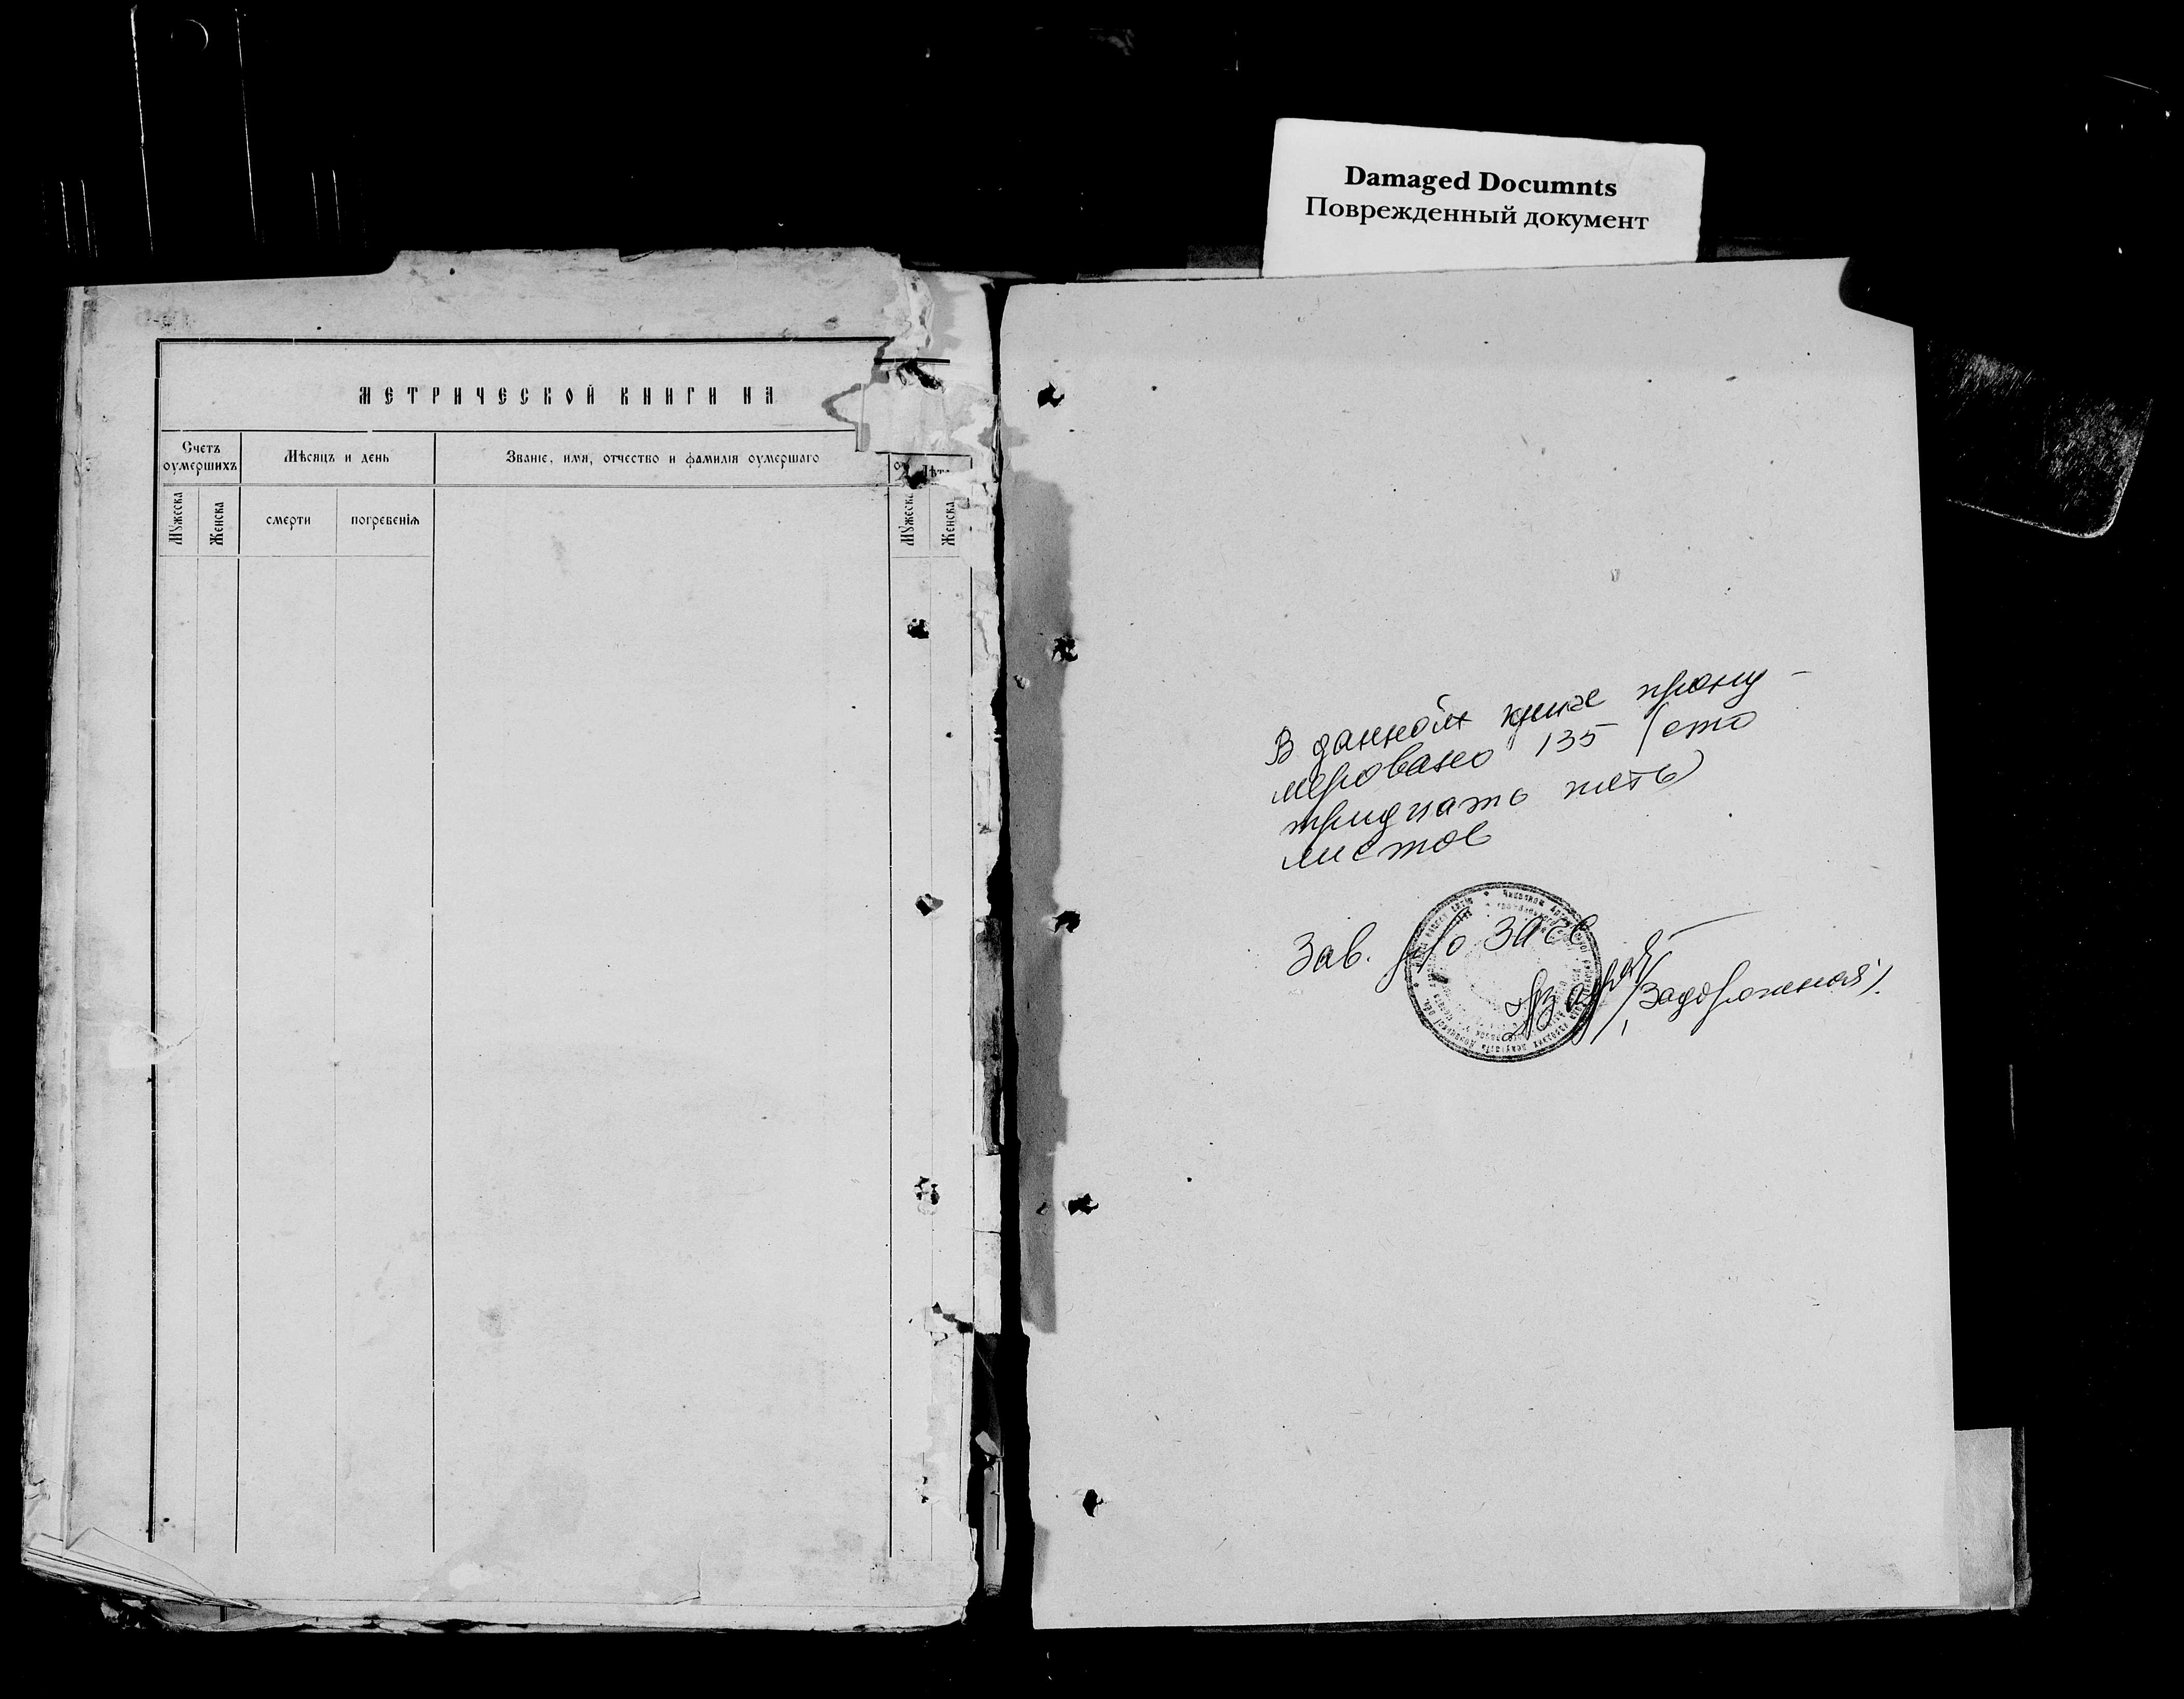 Damaged Documnts
Поврежденный документ
МЕТРИЧЕСКОЙ КНИГИ НА
Счетъ оумершихъ
Мѣсяцъ и день
Званіе, имя, отчество и фамилія оумершаго
Лѣта
Мꙋжеска
Женска
смерти
погребенія
Мꙋжеска
Женска
В данной книге прону-
меровано 135 (сто
тридцать пять)
листов
Зав. р/о ЗАГС
/Задорожная/.